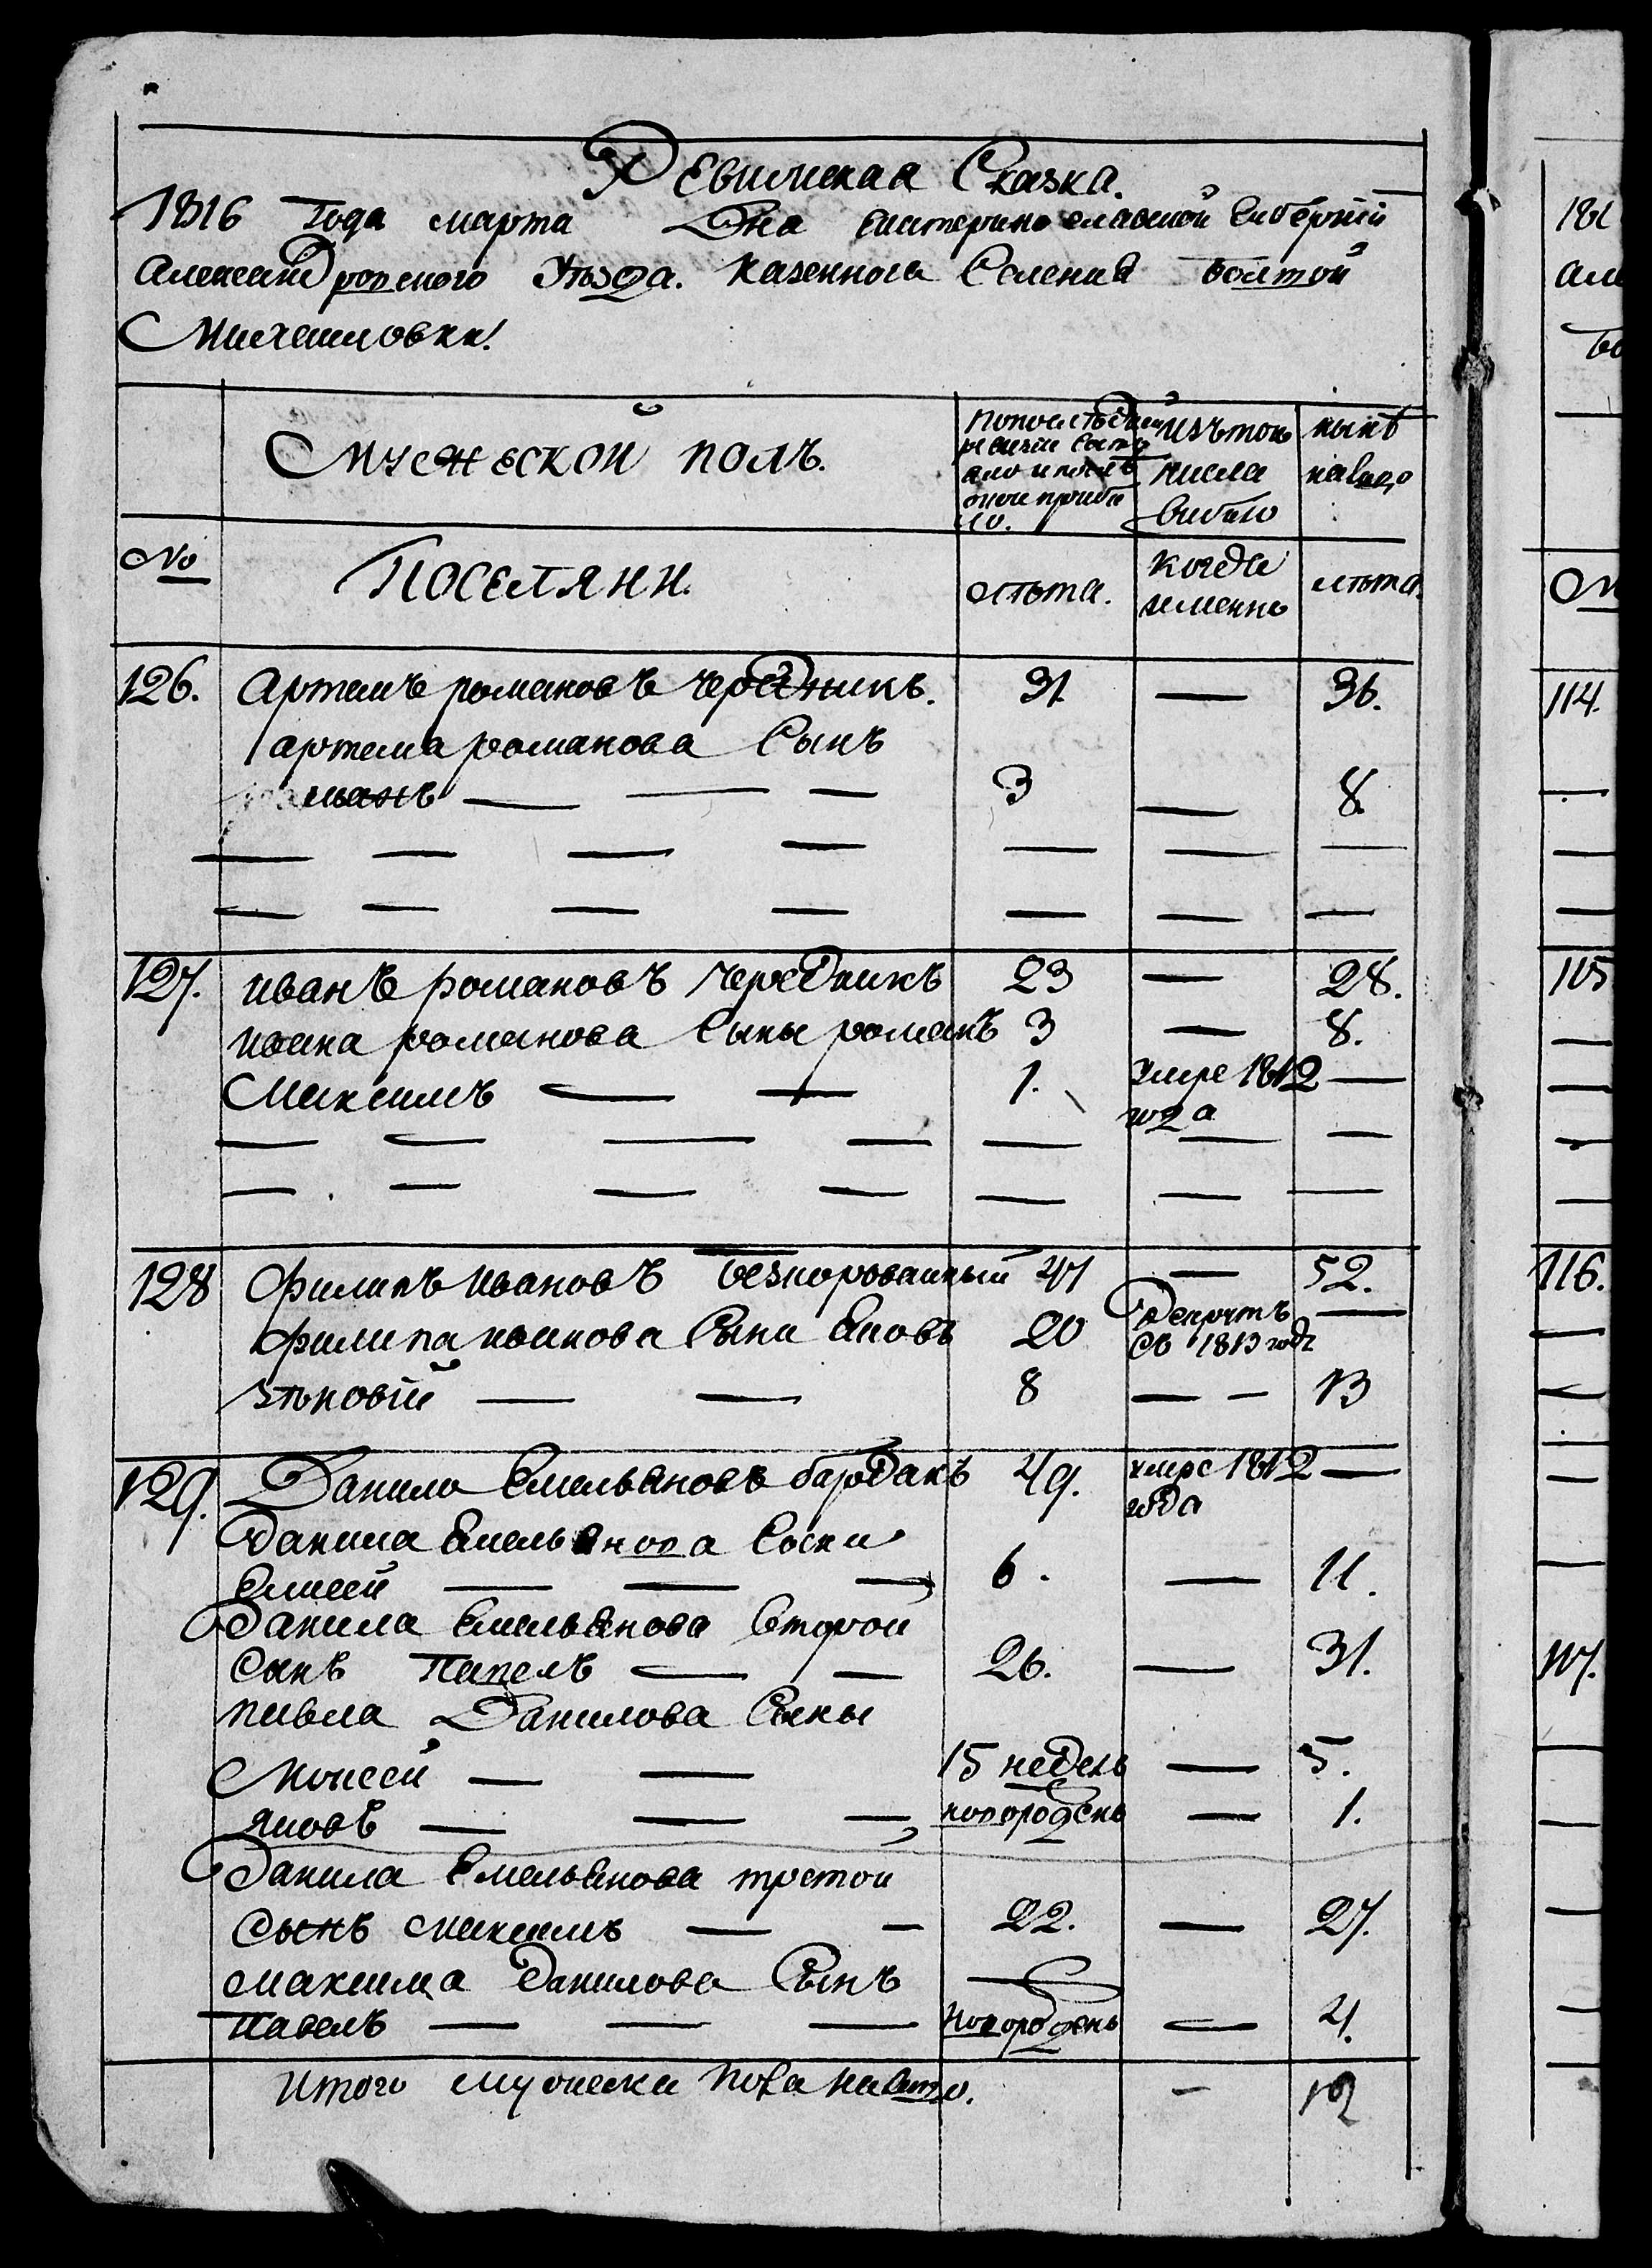 Ревижская Сказка.
1816 Года марта Дня Екатеринославской Губернии
Александровского Уезда. Казенного Селения Болтой
Михайловки.
Мужеской полъ.
По последней ревизии состояло и после оной прибыло.
Изъ того числа выбыло
ныне налицо
№
Поселяни.
лѣта.
когда именно
лѣта.
126. Артемъ романовъ чередникъ. 31 — 36.
артема романова Сынъ
романъ — — — 3 — 8.
127. иванъ романовъ чередникъ 23 — 28.
ивана романова Сыны романъ 3 — 8.
Максимъ — — 1. умре 1812 года —
128 Филипъ ивановъ безкоровайный 47 — 52.
филипа иванова Сыни Яковъ 20 въ рекруть съ 1813 году —
зѣновій — — 8 — — 13
129. Данило Емельяновъ бардакъ 49. умре 1812 года —
Данила Емельянова Сыни
Елисей — — — 6. — 11.
Данила Емельянова второй
Сынъ Павелъ — — 26. — 31.
павла Данилова Сыны
Моисей — — 15 недель — 5.
яковъ — — — новорожденъ — 1.
Данила Емельянова третой
Сынъ максимъ — — 22. — 27.
максима Данилова Сынъ
Павелъ — — — новорожденъ — 4.
Итого мужеска пола налицо. — 12
181
але
бо
114.
115
116.
117.